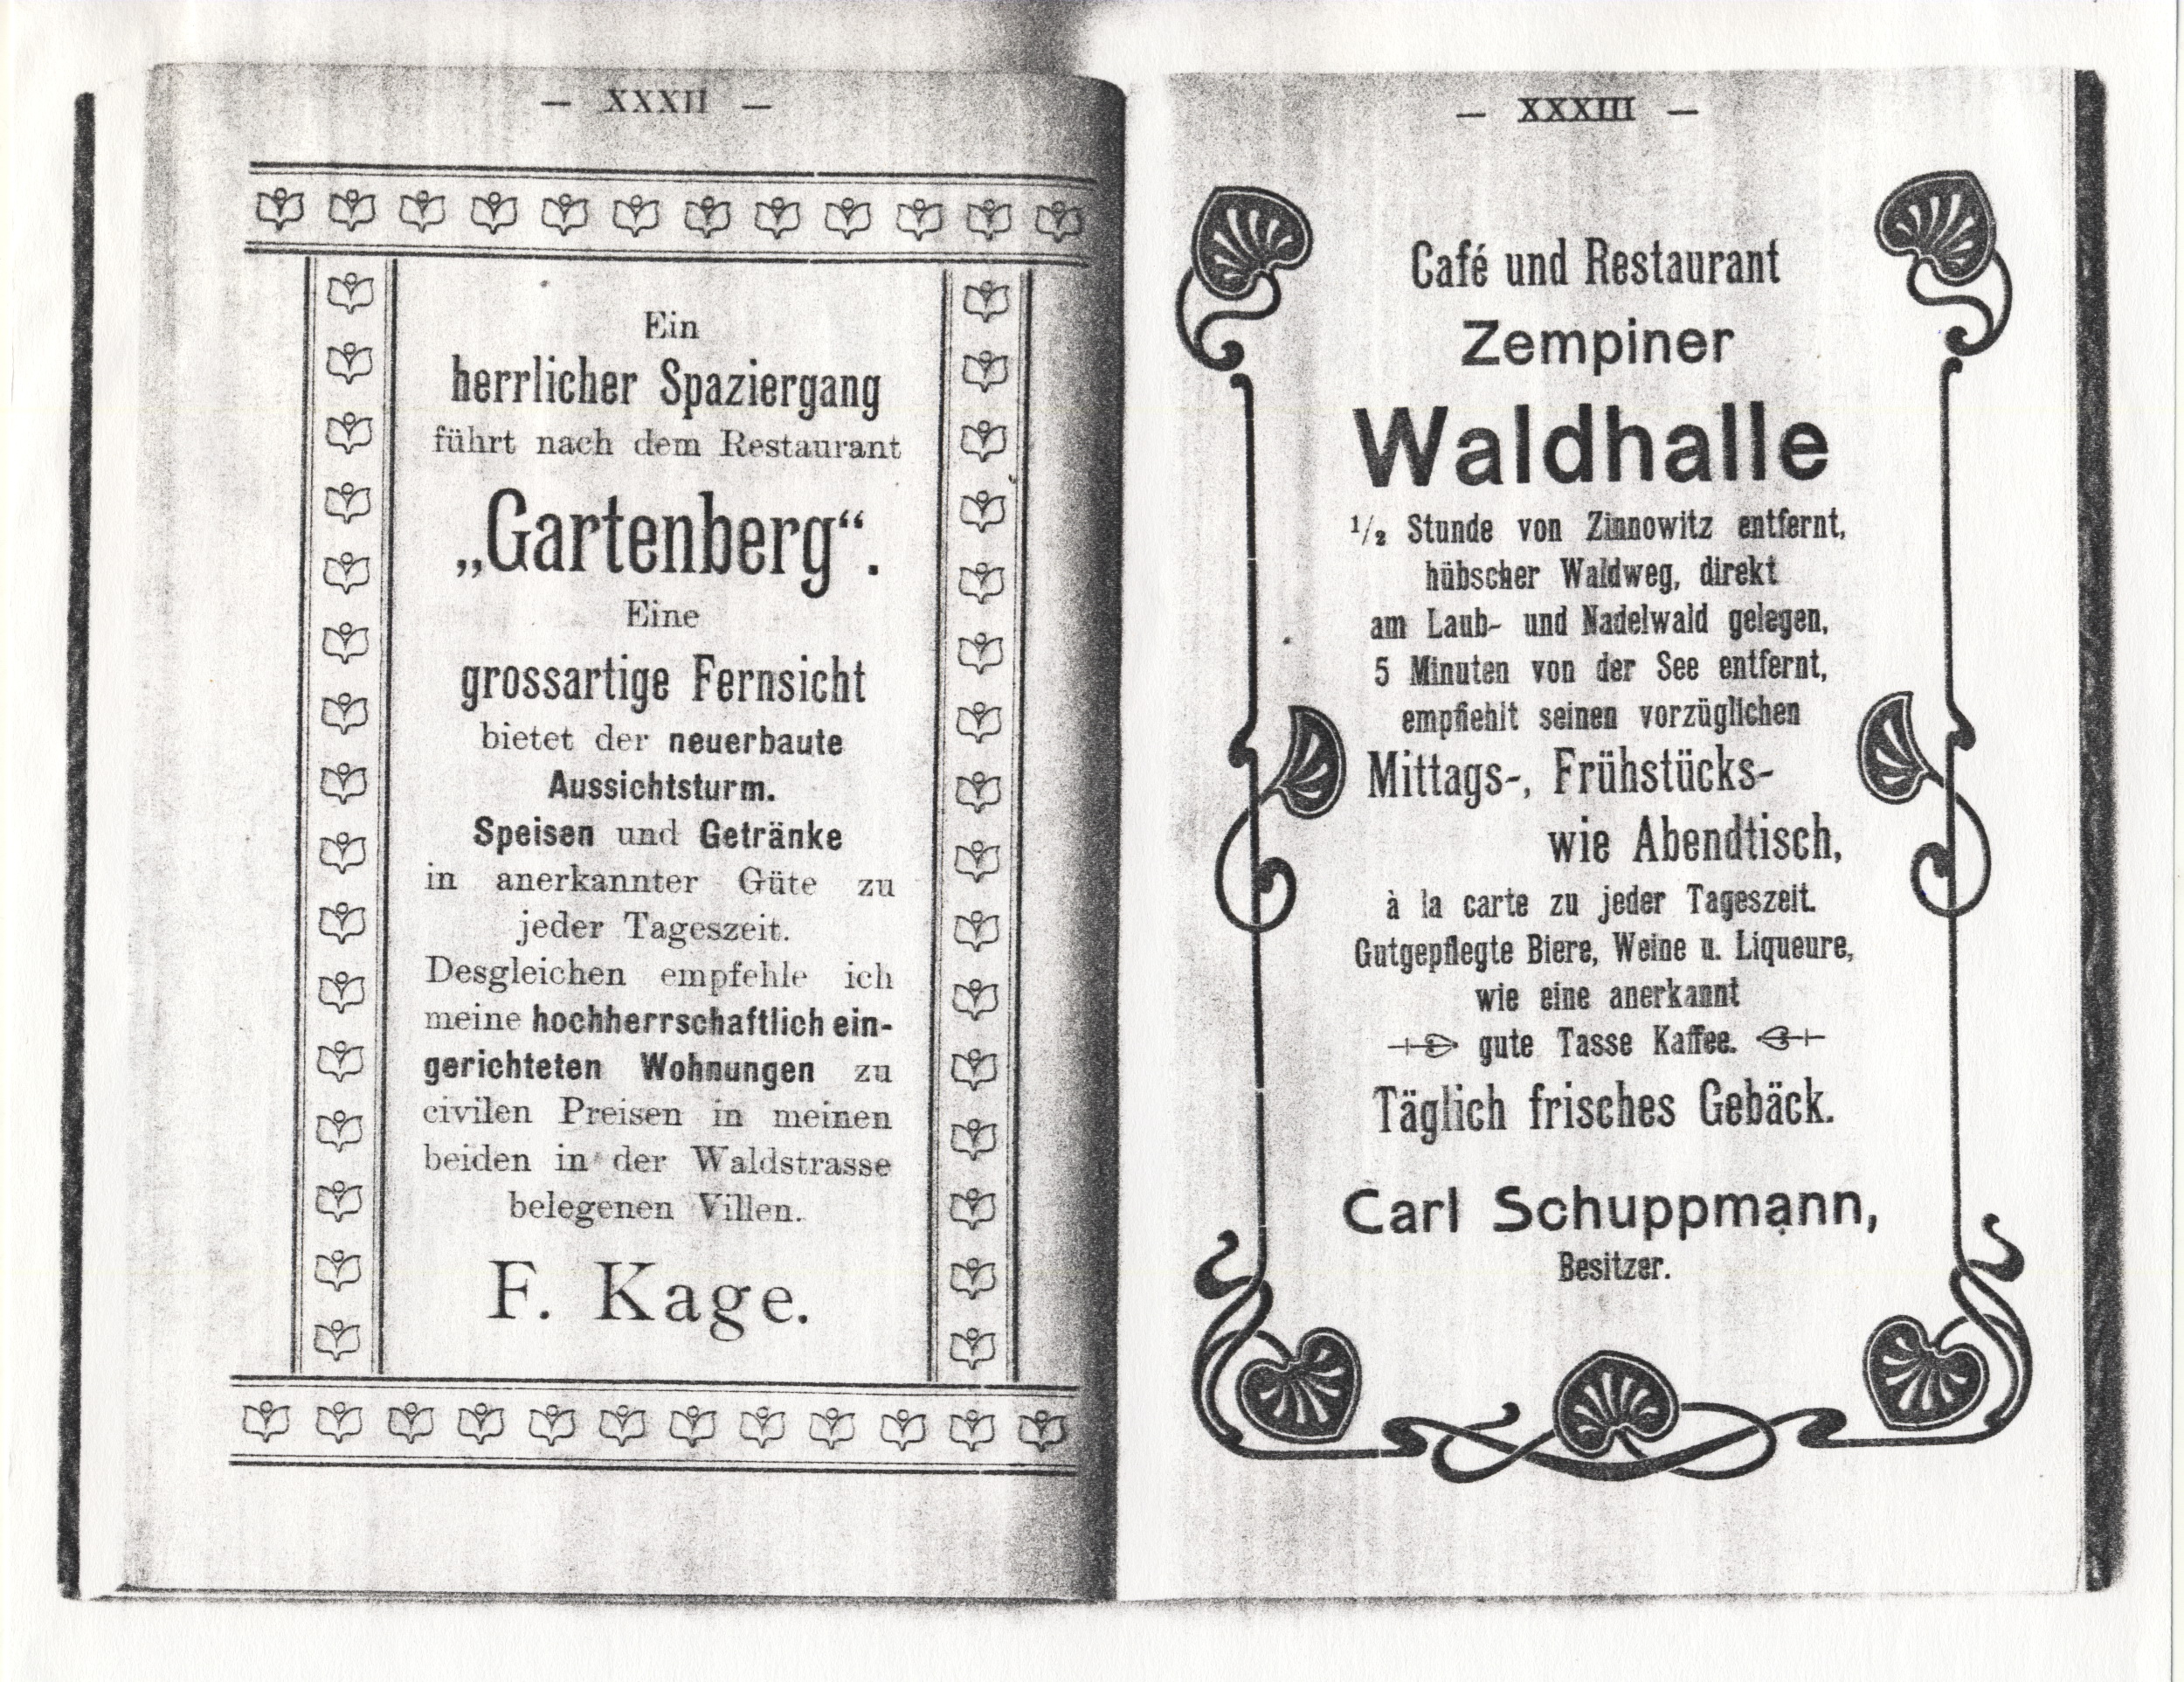 — XXXII —
Ein
herrlicher Spaziergang
führt nach dem Restaurant
„Gartenberg“.
Eine
grossartige Fernsicht
bietet der neuerbaute
Aussichtsturm.
Speisen und Getränke
in anerkannter Güte zu
jeder Tageszeit.
Desgleichen empfehle ich
meine hochherrschaftlich ein-
gerichteten Wohnungen zu
civilen Preisen in meinen
beiden in der Waldstrasse
belegenen Villen.
F. Kage.
— XXXIII —
Café und Restaurant
Zempiner
Waldhalle
1/2 Stunde von Zinnowitz entfernt,
hübscher Waldweg, direkt
am Laub- und Nadelwald gelegen,
5 Minuten von der See entfernt,
empfiehlt seinen vorzüglichen
Mittags-, Frühstücks-
wie Abendtisch,
à la carte zu jeder Tageszeit.
Gutgepflegte Biere, Weine u. Liqueure,
wie eine anerkannt
gute Tasse Kaffee.
Täglich frisches Gebäck.
Carl Schuppmann,
Besitzer.